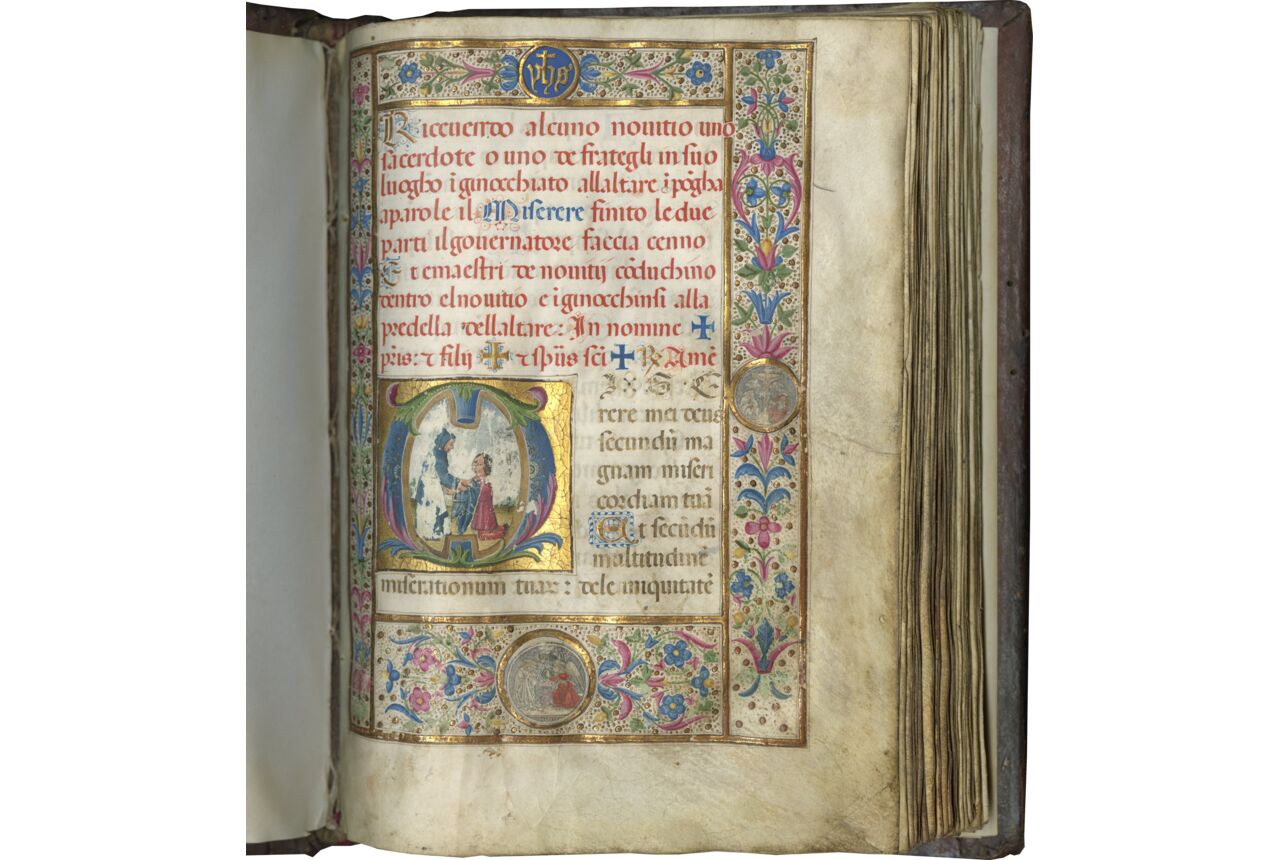 yhs
Riceuendo alcuno nouitio uno
sacerdote o uno de frategli in suo
luogho īginocchiato allaltare ī pōgha
aparole il Miserere finito le due
parti il gouernatore faccia cenno
Et e maestri de nouitij cōduchino
dentro el nouitio e īginocchinsi alla
predella dellaltare: In nomine ✚
pr̄is: ⁊ filij ✚ ⁊ sp̄us sc̄i ✚ ℞ Amē
M I S E
rere mei deus
secundū ma
gnam miseri
cordiam tuā
Et secūdū
multitudinē
miserationum tuaꝝ: dele iniquitatē